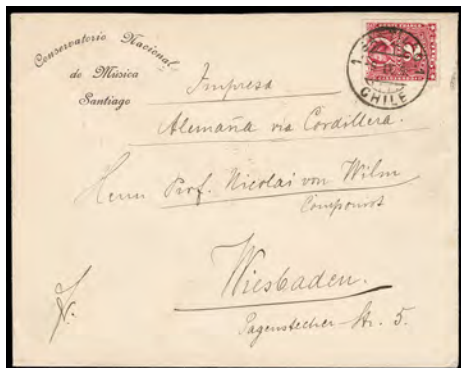 Conservatorio Nacional
de Música
Santiago
CHILE
Impresa
Alemaña via Cordillera.
Herrn Prof. Nicolai von Wilm
Componist
Wiesbaden.
Pagenstecher Str. 5.